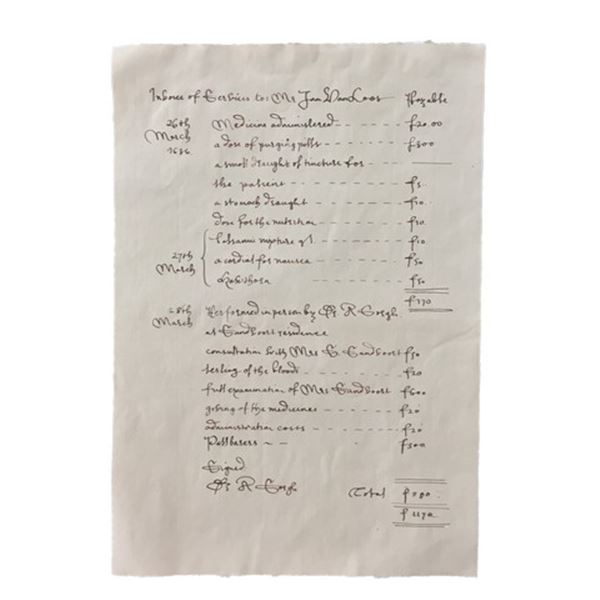 Invoice of Services to: Mr Jan Van Loos Payable
26th March 1636 Medicine administered f20.00
a dose of purging pills f300
a small draught of tincture for
the patient f5
a stomach draught f10
dose for the nutrition f10
balsamic mixture f10
27th March a cordial for nausea f50
f50
f770
28th March Performed in person by Dr R Sorgh
at Sandvoort residence
consultation with Mrs S Sandvoort f50
testing of the blood f20
full examination of Mrs Sandvoort f600
giving of the medicines f20
administration costs f20
Pallbearers f300
Signed
Dr R Sorgh Total